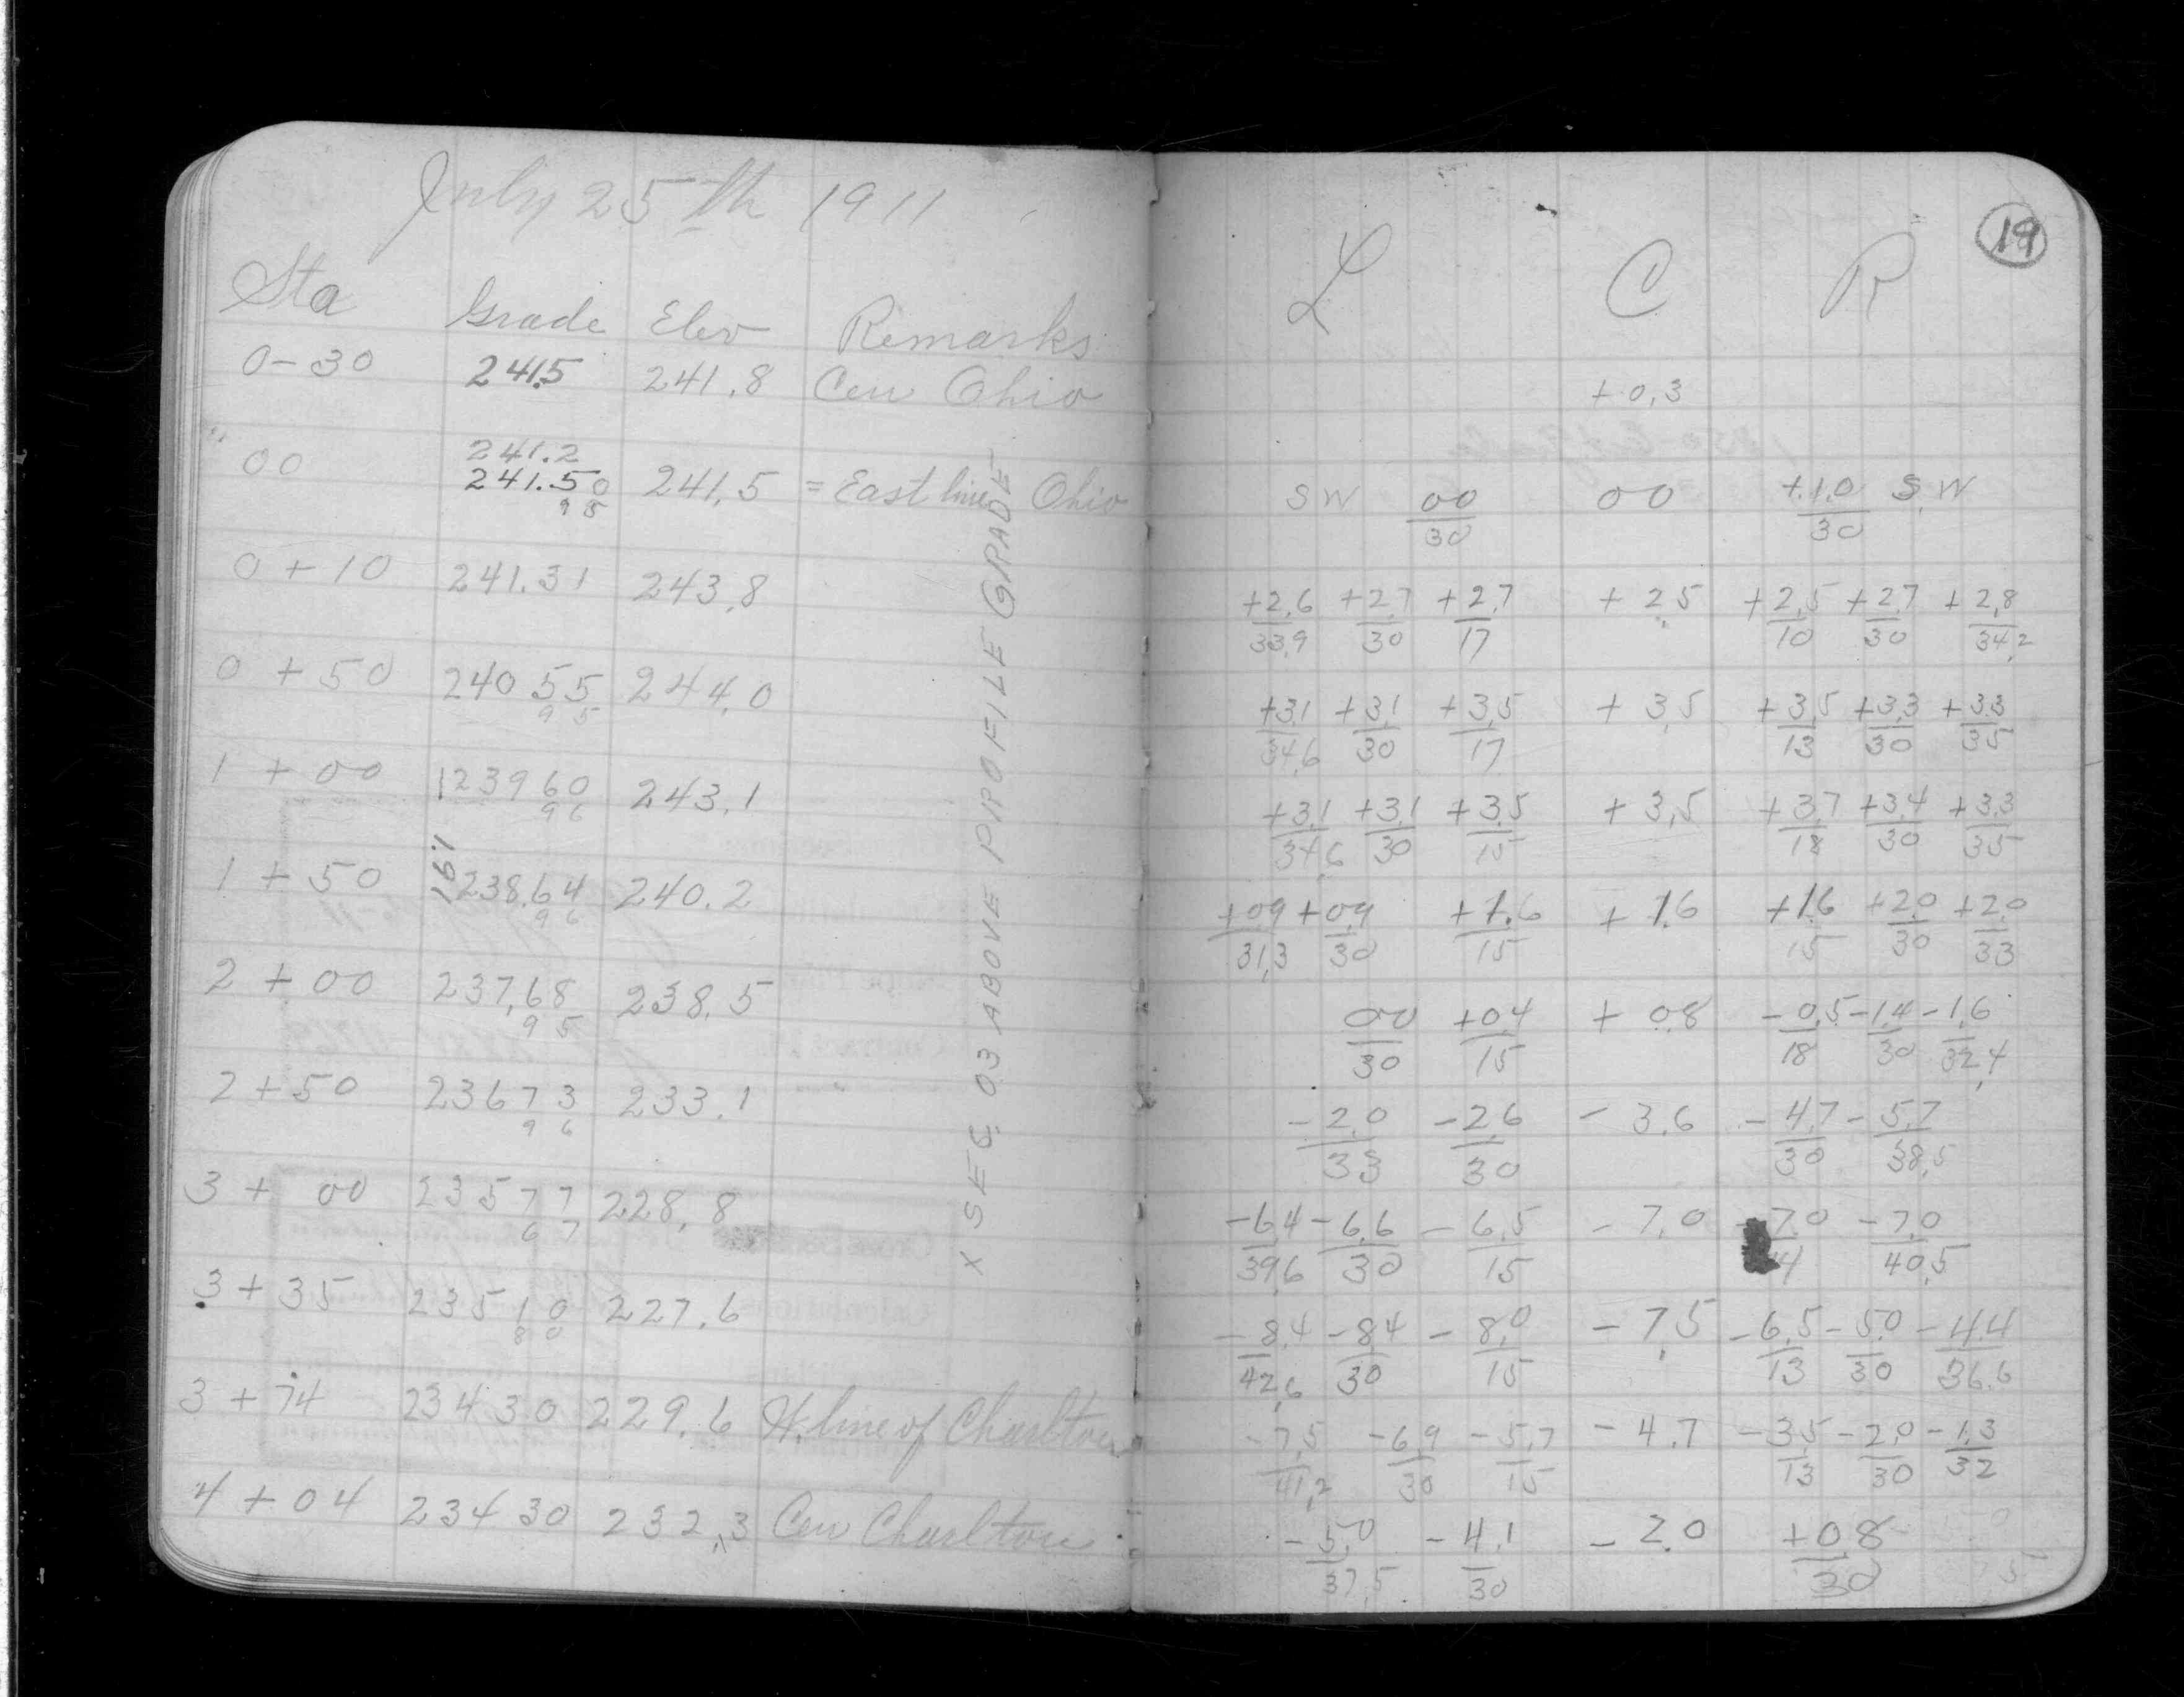 July 25th 1911
Sta Grade Elev Remarks
0-30 241.5 241.8 Cen Ohio
00 241.2
241.50 241.5 = East line Ohio
95
0+10 241.31 243.8
0+50 240 55 244.0
95
1+00 239 60 243.1
96
1.91
1+50 238.64 240.2
96
2+00 237.68 238.5
95
2+50 236 73 233.1
96
3+00 235 77 228.8
67
3+35 235 10 227.6
80
3+74 234 30 229.6 W. line of Charlton
4+04 234 30 232.3 Cen Charlton
X SEC 03 ABOVE PROFILE GRADE
19
L C R
+0.3
SW 00 00 +1.0 SW
30 30
+2.6 +2.7 +2.7 +2.5 +2.5 +2.7 +2.8
33.9 30 17 10 30 34.2
+3.1 +3.1 +3.5 +3.5 +3.5 +3.3 +3.3
34.6 30 17 13 30 35
+3.1 +3.1 +3.5 +3.5 +3.7 +3.4 +3.3
34.6 30 15 18 30 35
+0.9 +0.9 +1.6 +1.6 +1.6 +2.0 +2.0
31.3 30 15 15 30 33
00 +0.4 +0.8 -0.5 -1.4 -1.6
30 15 18 30 32.4
-2.0 -2.6 -3.6 -4.7 -5.7
33 30 30 38.5
-6.4 -6.6 -6.5 -7.0 -7.0 -7.0
39.6 30 15 40.5
-8.4 -8.4 -8.0 -7.5 -6.5 -5.0 -4.4
42.6 30 15 13 30 36.6
-7.5 -6.9 -5.7 -4.7 -3.5 -2.0 -1.3
41.2 30 15 13 30 32
-5.0 -4.1 -2.0 +0.8
37.5 30 30